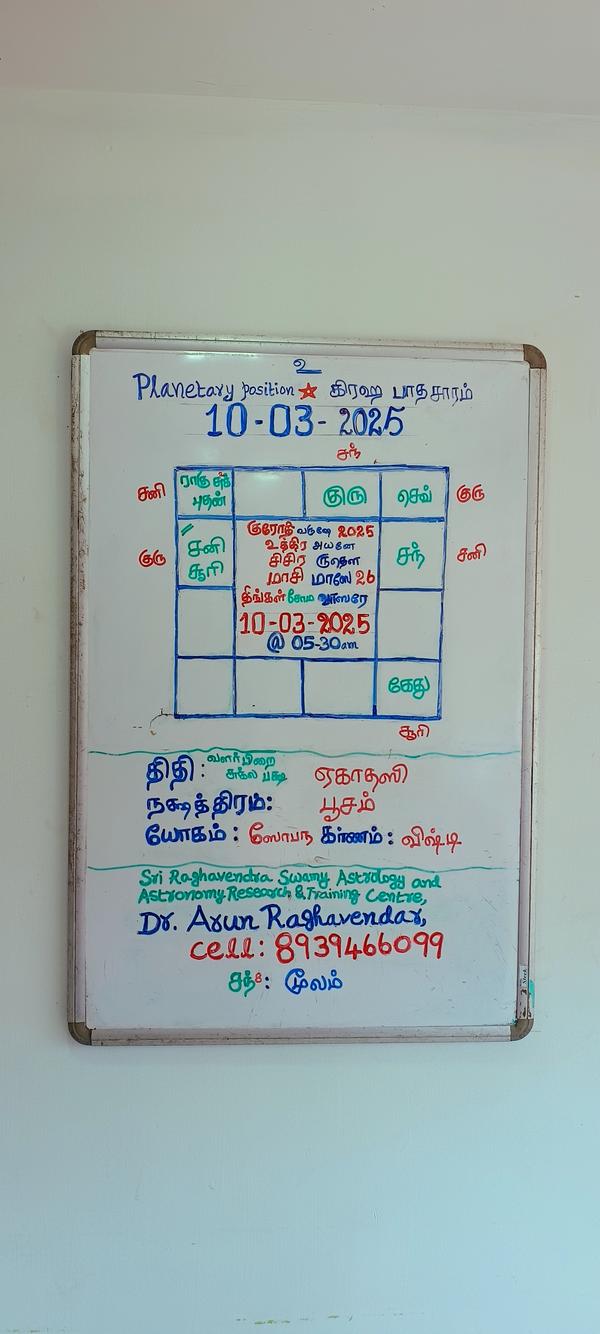 உ
Planetary position கிரஹ பாதசாரம்
10-03-2025
சந்
சனி ராகு சுக் குரு செவ் குரு
புதன்
குரு சனி சந் சனி
சூரி
குரோதி வருஷே 2025
உத்திர அயனே
சிசிர ருதௌ
மாசி மாஸே 26
திங்கள் சோம வாஸரே
10-03-2025
@ 05-30am
கேது
சூரி
திதி: வளர்பிறை ஏகாதஸி
சுக்ல பக்ஷ
நக்ஷத்திரம்: பூசம்
யோகம்: ஸோபந கரணம்: விஷ்டி
Sri Raghavendra Swamy Astrology and
Astronomy Research & Training Centre,
Dr. Arun Raghavendar,
cell: 8939466099
சந்8: மூலம்